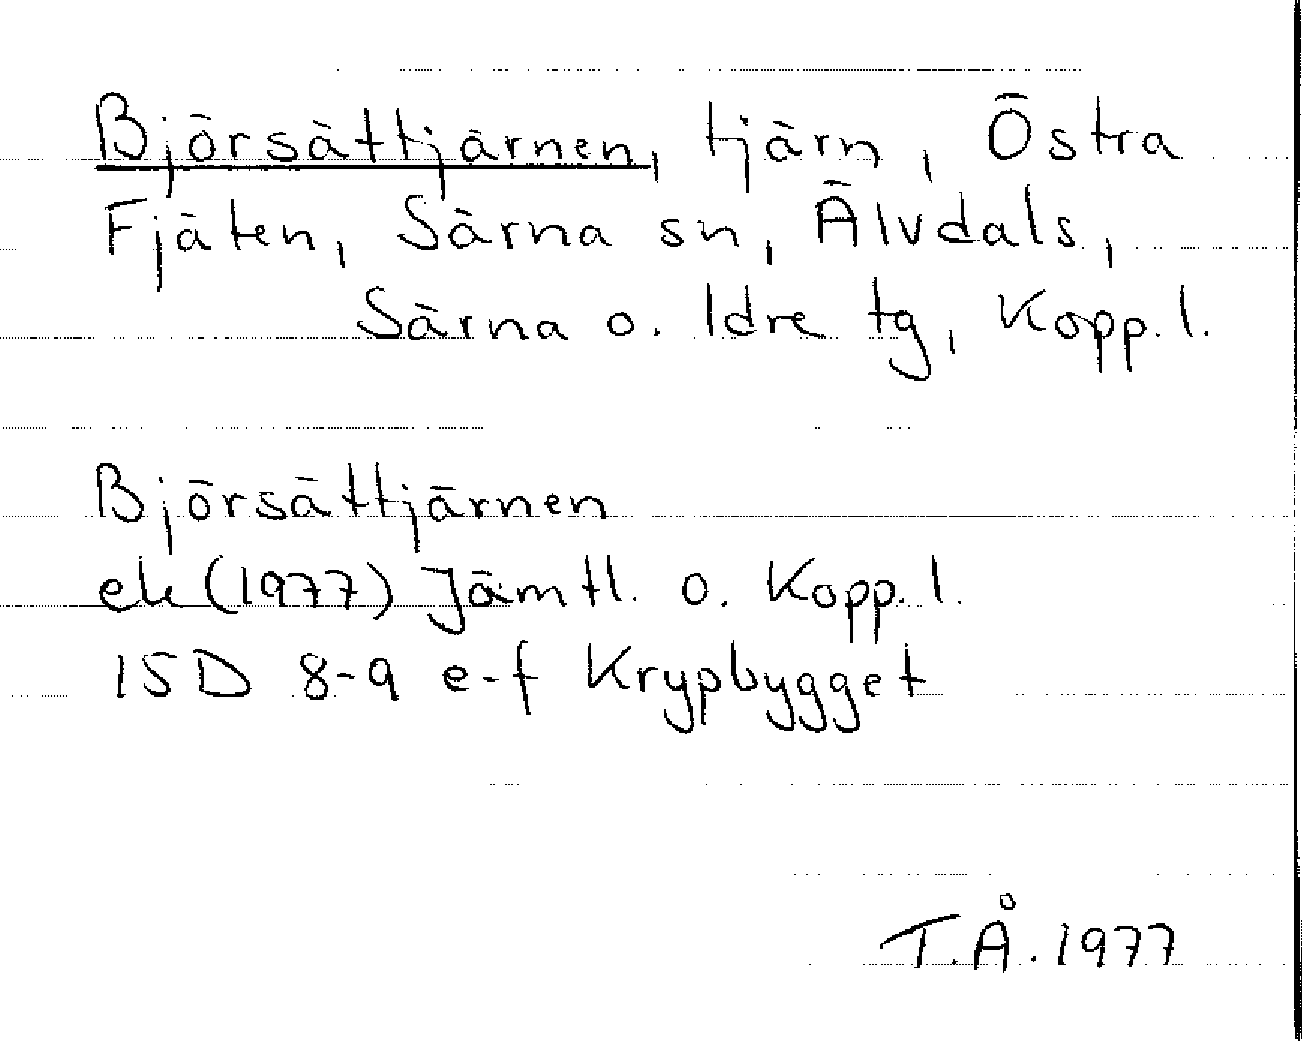 Björsättjärnen, tjärn, Östra
Fjäten, Särna sn, Älvdals,
Särna o. Idre tg, Kopp. l.
Björsättjärnen
ek (1977) Jämtl. o. Kopp. l.
15D 8-9 e-f Krypbygget
T.Å. 1977